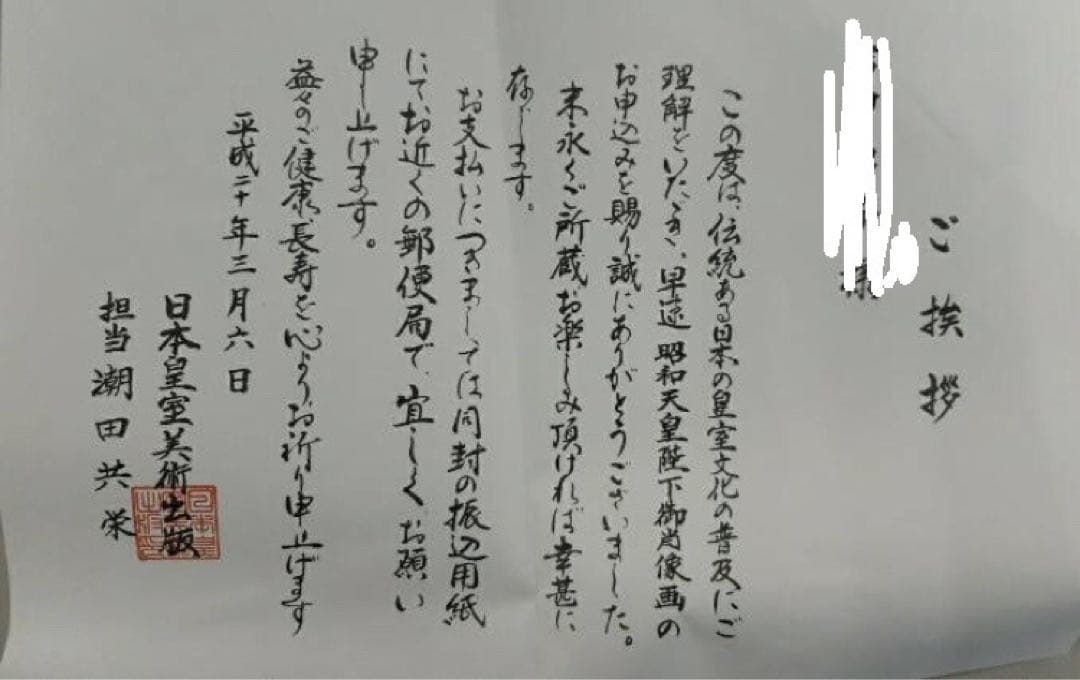 ご挨拶
様
この度は、伝統ある日本の皇室文化の普及にご
理解をいたゞき、早速昭和天皇陛下御肖像画の
お申込みを賜り誠にありがとうございました。
末永くご所蔵お楽しみ頂ければ幸甚に
存じます。
お支払いにつきましては同封の振込用紙
にてお近くの郵便局で、宜しくお願い
申し上げます。
益々のご健康、長寿を心よりお祈り申上げます
平成二十年三月六日
日本皇室美術出版
担当潮田共栄